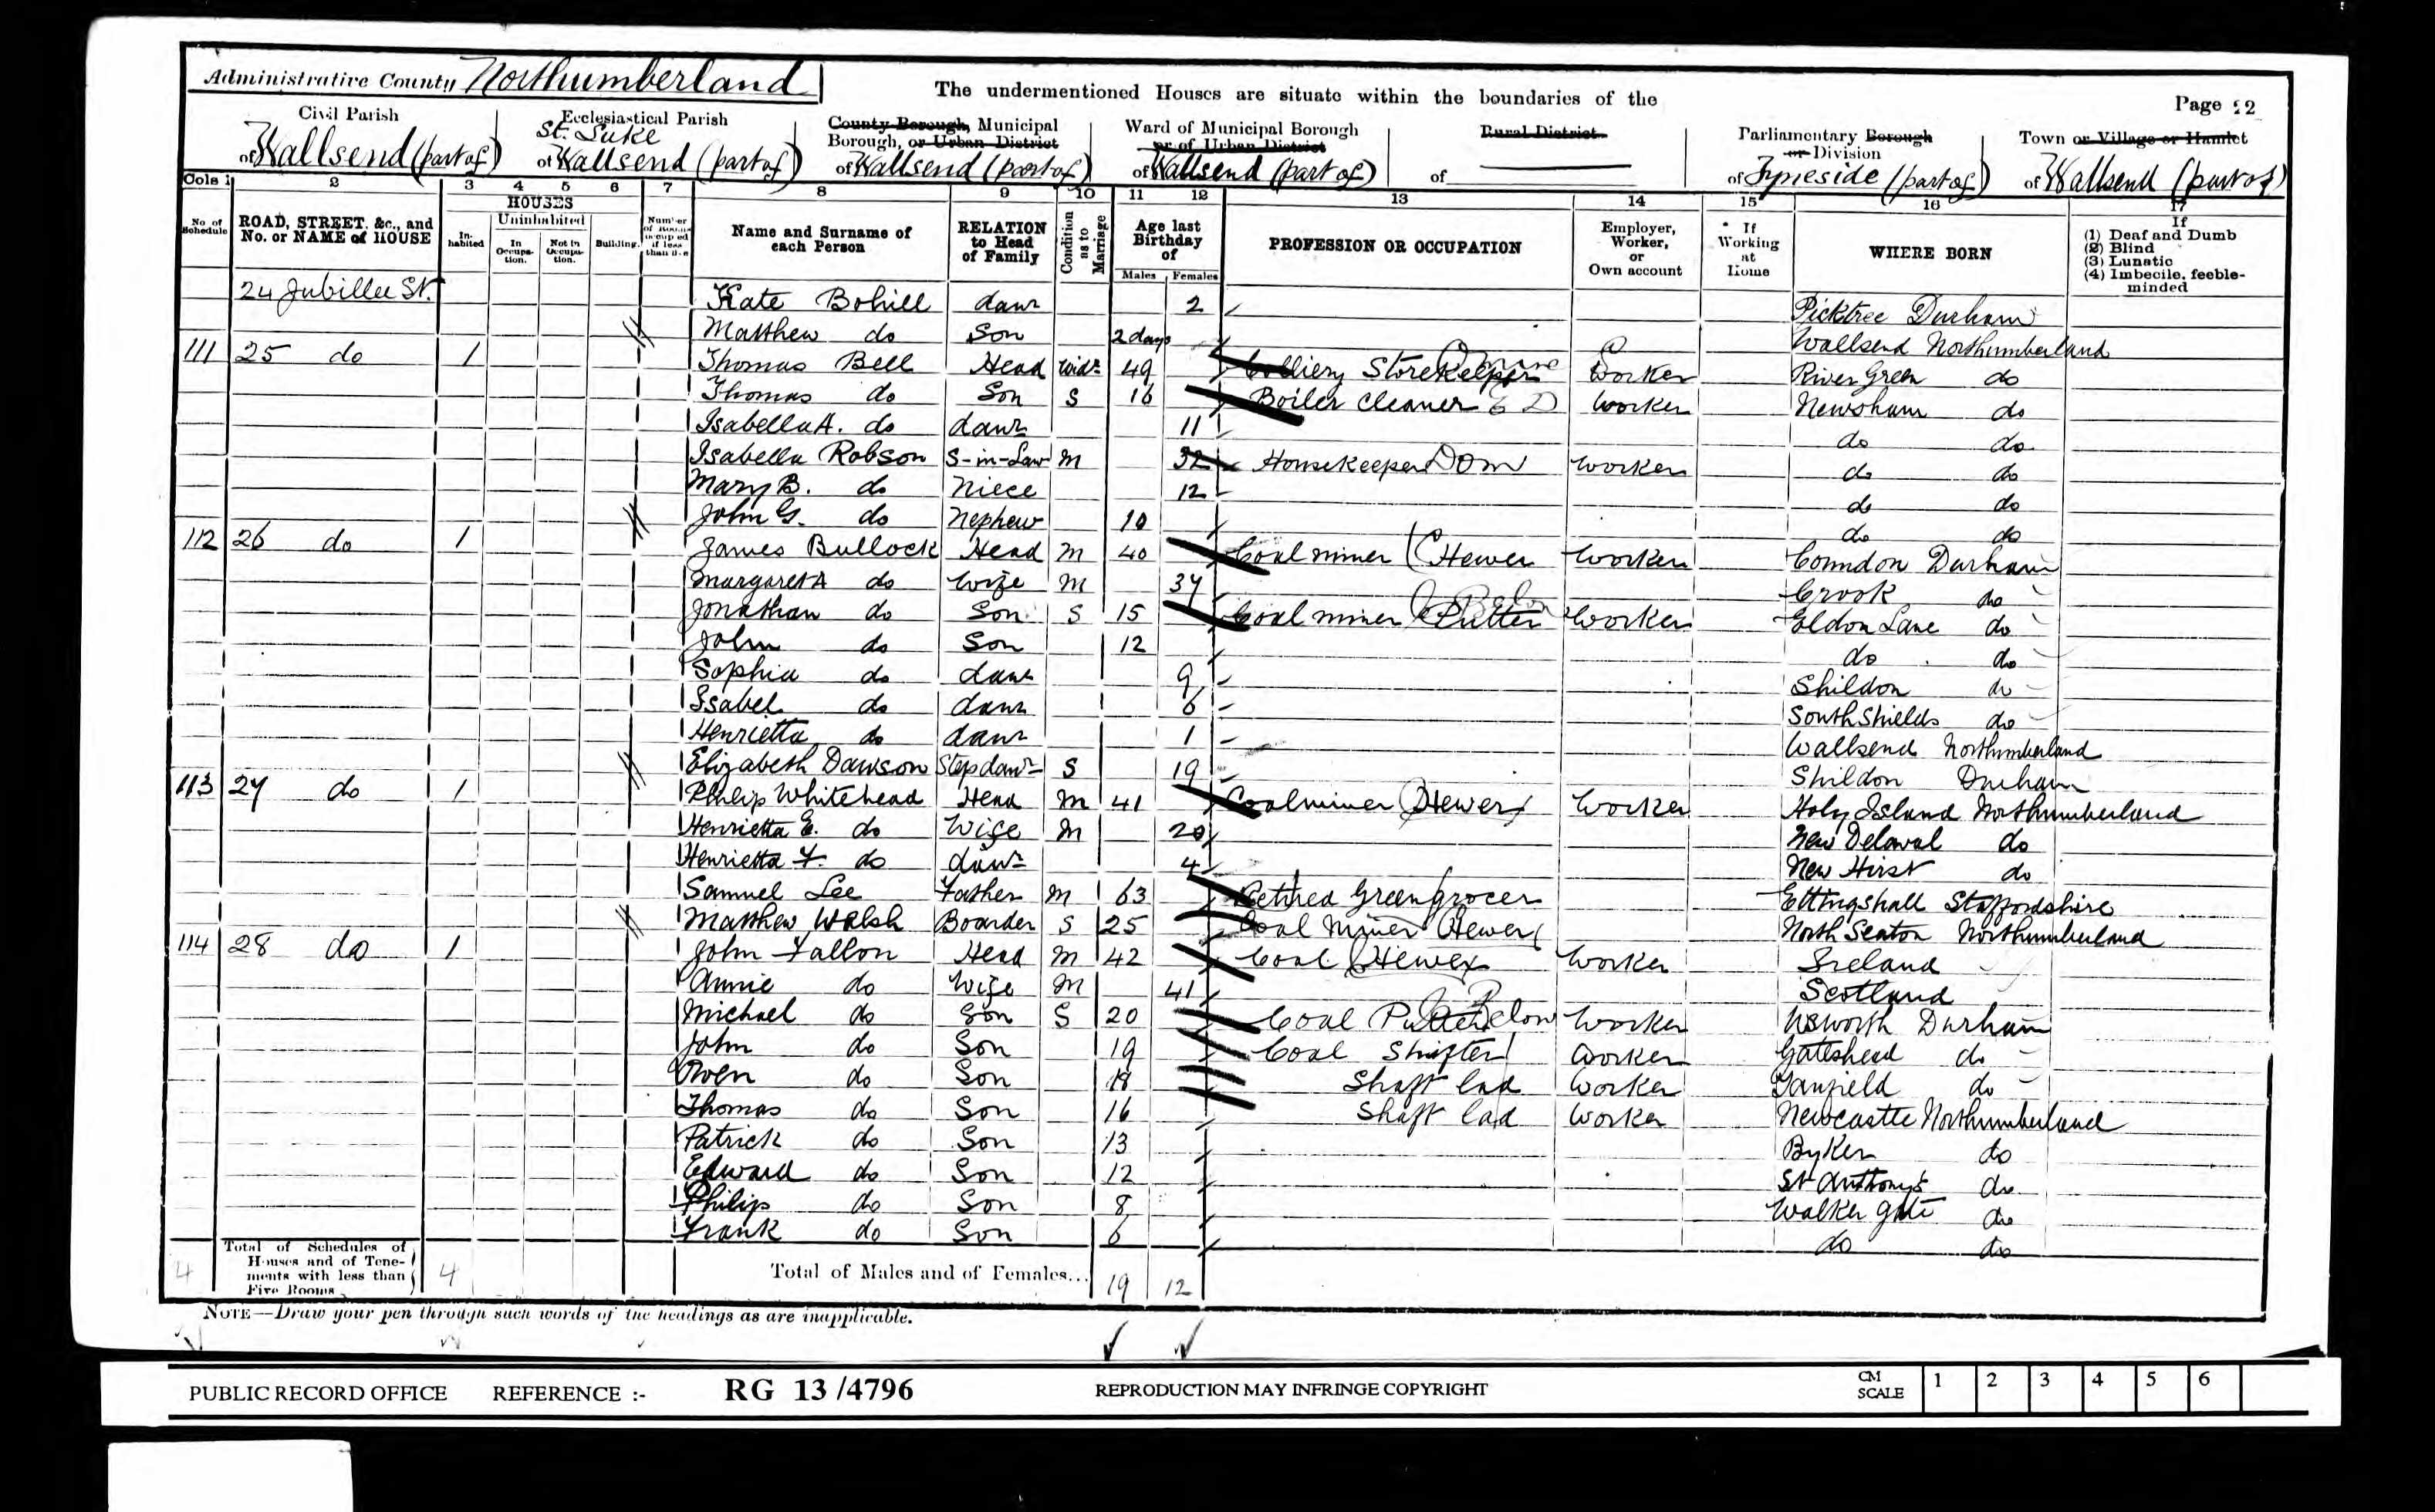 Administrative County Northumberland
The undermentioned Houses are situate within the boundaries of the
Page 22
Civil Parish of Wallsend (part of)
Ecclesiastical Parish St. Luke of Wallsend (part of)
County Borough, Municipal Borough, or Urban District of Wallsend (part of)
Ward of Municipal Borough or of Urban District of Wallsend (part of)
Rural District of
Parliamentary Borough or Division of Tyneside (part of)
Town or Village or Hamlet of Wallsend (part of)
Cols 1 2 3 4 5 6 7 8 9 10 11 12 13 14 15 16 17
No. of Schedule
ROAD, STREET, &c., and No. or NAME of HOUSE
HOUSES
Inhabited
Uninhabited
In Occupation.
Not in Occupation.
Building.
Number of Rooms occupied if less than five
Name and Surname of each Person
RELATION to Head of Family
Condition as to Marriage
Age last Birthday of
Males Females
PROFESSION OR OCCUPATION
Employer, Worker, or Own account
If Working at Home
WHERE BORN
If (1) Deaf and Dumb (2) Blind (3) Lunatic (4) Imbecile, feeble-minded
24 Jubillee St. Kate Bohill daur 2 Picktree Durham
Matthew do Son 2 days Wallsend Northumberland
111 25 do 1 Thomas Bell Head Widr 49 Colliery Storekeeper Worker River Green do
Thomas do Son S 16 Boiler Cleaner Worker Newsham do
Isabella A. do daur 11 do do
Isabella Robson S-in-Law M 32 Housekeeper Dom Worker do do
Mary B. do Niece 12 do do
John G. do Nephew 10 do do
112 26 do 1 James Bullock Head M 40 Coal miner Hewer Worker Coundon Durham
Margaret A do Wife M 37 Crook do
Jonathan do Son S 15 Coal miner Putter Worker Eldon Lane do
John do Son 12 do do
Sophia do daur 9 Shildon do
Isabel do daur 6 South Shields do
Henrietta do daur 1 Wallsend Northumberland
Elizabeth Dawson Step daur S 19 Shildon Durham
113 27 do 1 Philip Whitehead Head M 41 Coalminer Hewer Worker Holy Island Northumberland
Henrietta E. do Wife M 20 New Delaval do
Henrietta F. do daur 4 New Hirst do
Samuel Lee Father M 63 Retired Greengrocer Ettingshall Staffordshire
Matthew Walsh Boarder S 25 Coal Miner Hewer North Seaton Northumberland
114 28 do 1 John Fallon Head M 42 Coal Hewer Worker Ireland
Annie do Wife M 41 Scotland
Michael do Son S 20 Coal Putter Below Worker Usworth Durham
John do Son 19 Coal Shifter Worker Gateshead do
Owen do Son 18 Shaft lad Worker Tanfield do
Thomas do Son 16 Shaft lad Worker Newcastle Northumberland
Patrick do Son 13 Byker do
Edward do Son 12 St Anthony's do
Philip do Son 8 Walker Gate do
Frank do Son 6 do do
4 Total of Schedules of Houses and of Tenements with less than Five Rooms 4 Total of Males and of Females... 19 12
NOTE—Draw your pen through such words of the headings as are inapplicable.
PUBLIC RECORD OFFICE REFERENCE :- RG 13/4796 REPRODUCTION MAY INFRINGE COPYRIGHT CM SCALE 1 2 3 4 5 6